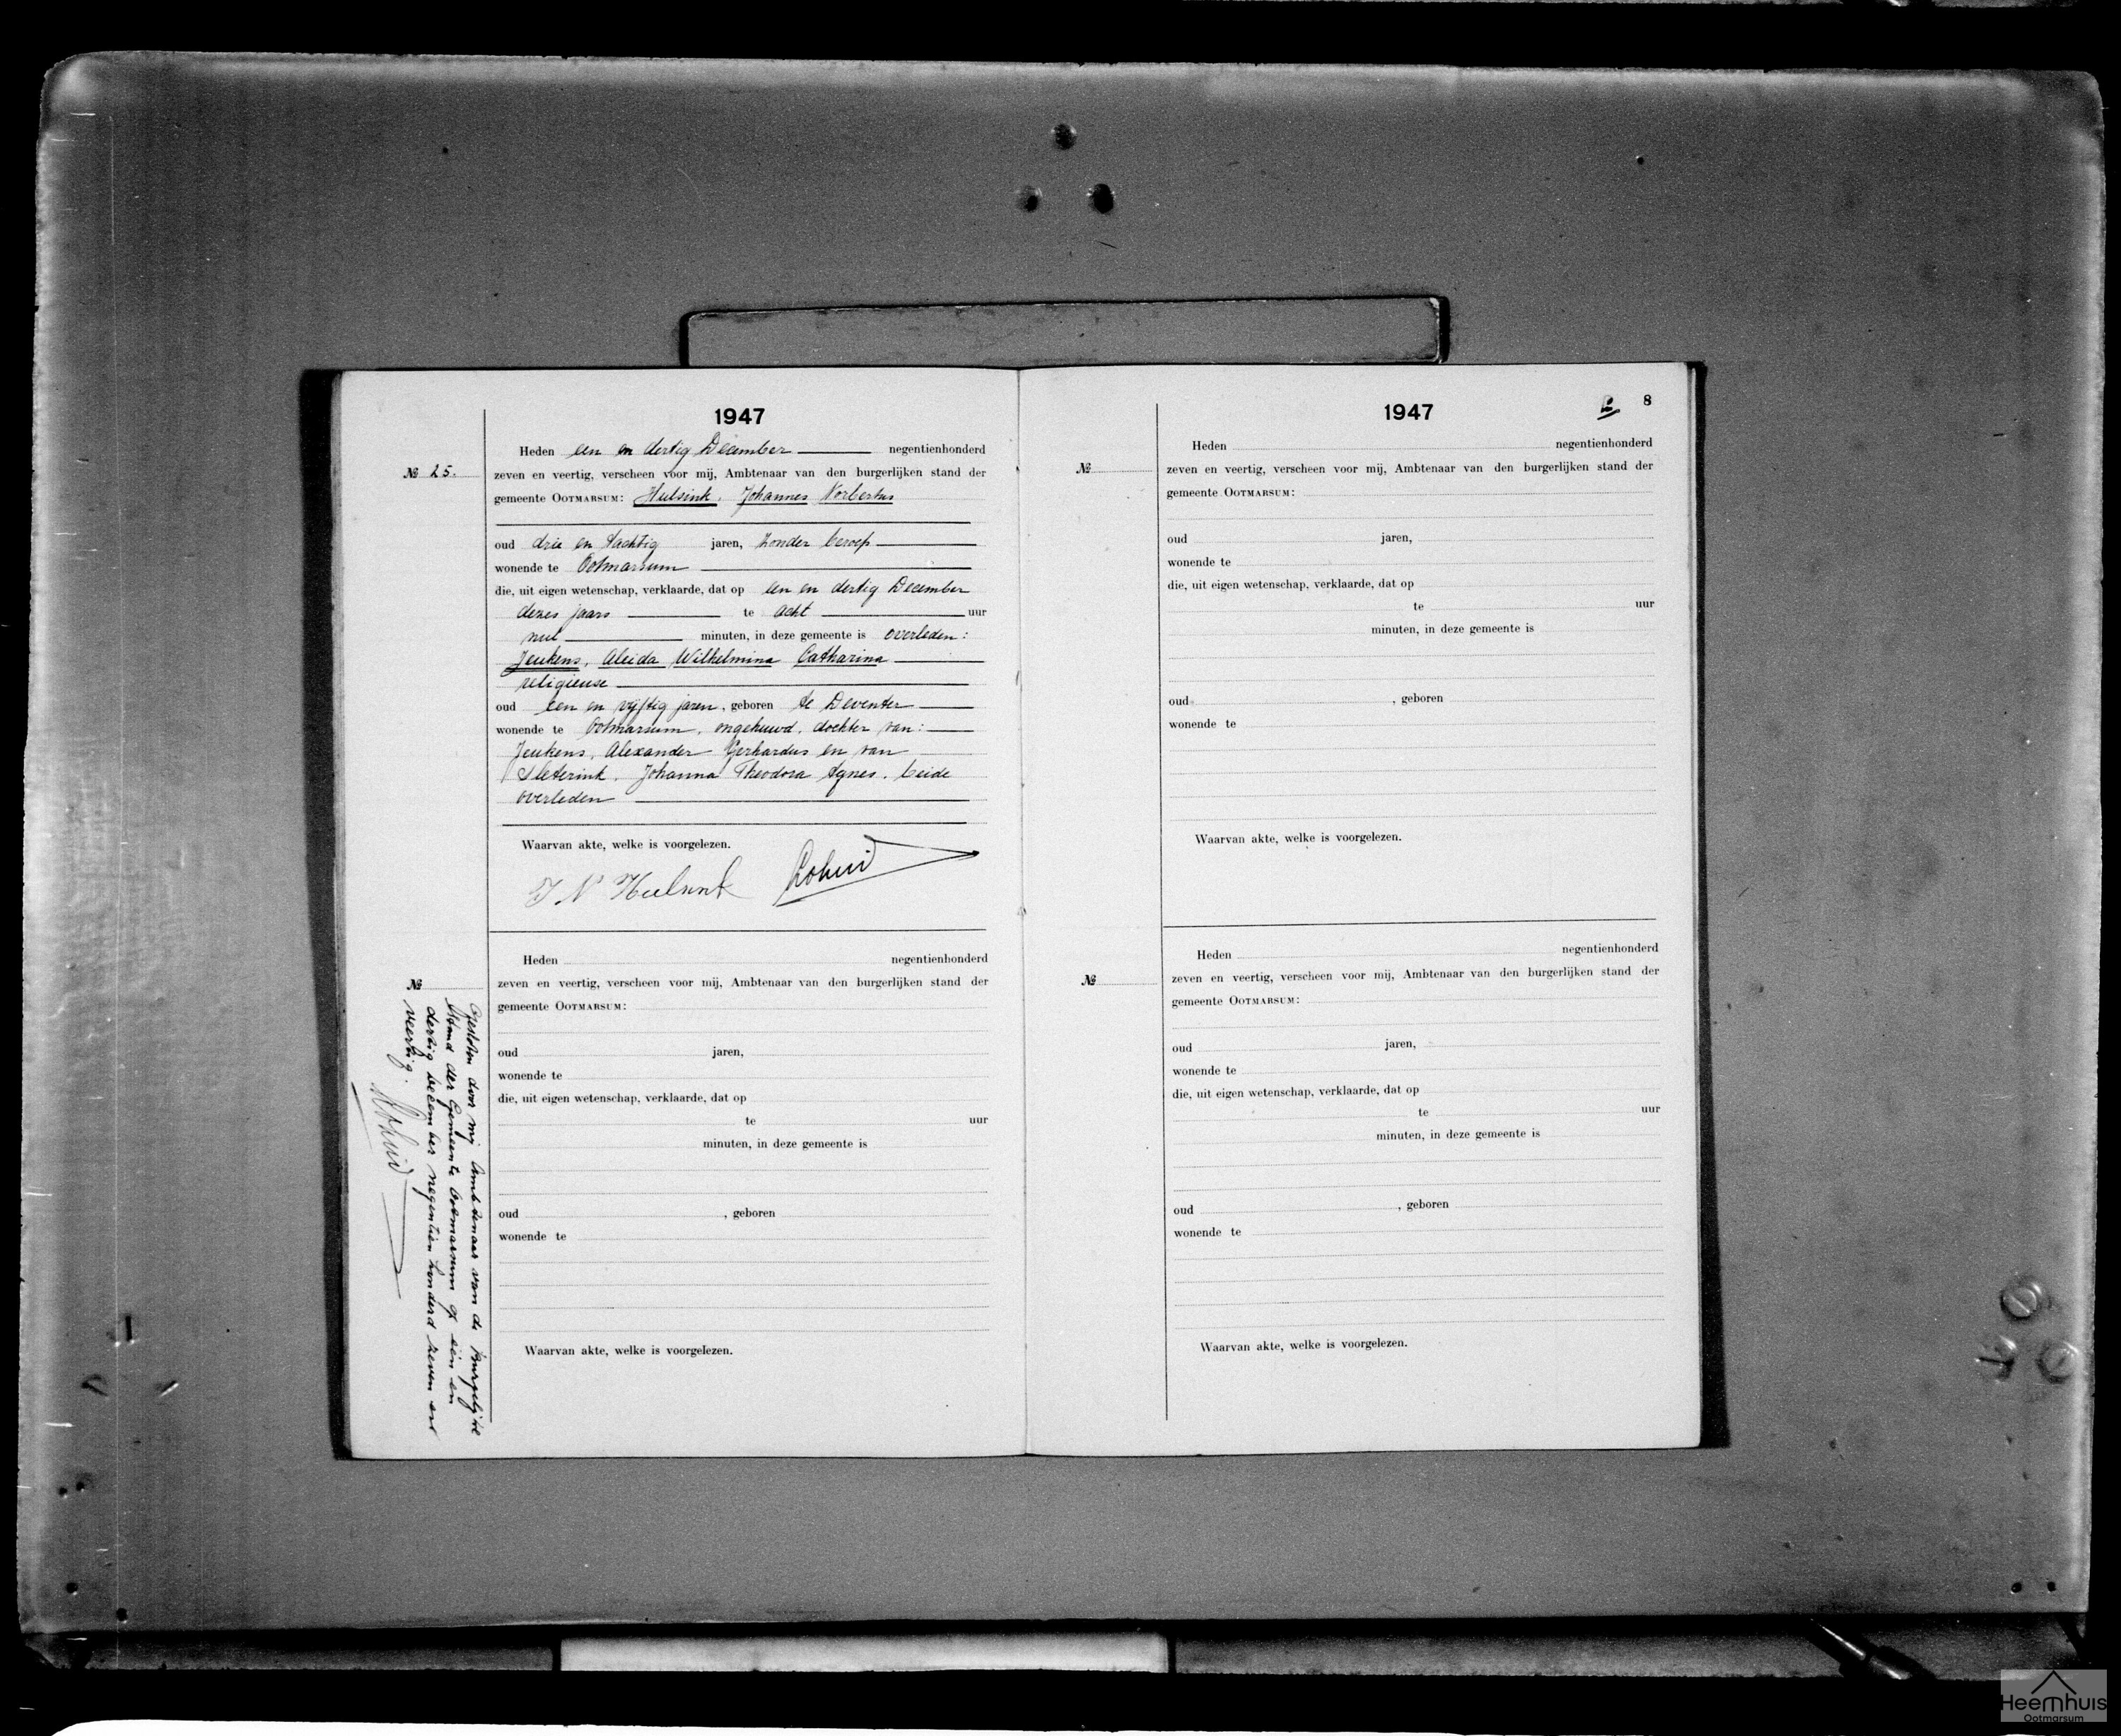 1947
Heden een en dertig December negentienhonderd
№ 25.
zeven en veertig, verscheen voor mij, Ambtenaar van den burgerlijken stand der
gemeente OOTMARSUM: Hulsink, Johannes Norbertus
oud drie en tachtig jaren, zonder beroep
wonende te Ootmarsum
die, uit eigen wetenschap, verklaarde, dat op een en dertig December
dezes jaars te acht uur
nul minuten, in deze gemeente is overleden:
Jeukens, Aleida Wilhelmina Catharina
religieuse
oud een en vijftig jaren, geboren te Deventer
wonende te Ootmarsum, ongehuwd, dochter van:
Jeukens, Alexander Gerhardus en van
Sleterink, Johanna Theodora Agnes, beide
overleden
Waarvan akte, welke is voorgelezen.
J N Hulsink
Heden negentienhonderd
№
zeven en veertig, verscheen voor mij, Ambtenaar van den burgerlijken stand der
gemeente OOTMARSUM:
oud jaren,
wonende te
die, uit eigen wetenschap, verklaarde, dat op
te uur
minuten, in deze gemeente is
oud , geboren
wonende te
Waarvan akte, welke is voorgelezen.
Gesloten door mij Ambtenaar van de Burgelijke
Stand der Gemeente Ootmarsum op één en
dertig december negentien honderd zeven en
veertig.
1947
8
Heden negentienhonderd
№
zeven en veertig, verscheen voor mij, Ambtenaar van den burgerlijken stand der
gemeente OOTMARSUM:
oud jaren,
wonende te
die, uit eigen wetenschap, verklaarde, dat op
te uur
minuten, in deze gemeente is
oud , geboren
wonende te
Waarvan akte, welke is voorgelezen.
Heden negentienhonderd
№
zeven en veertig, verscheen voor mij, Ambtenaar van den burgerlijken stand der
gemeente OOTMARSUM:
oud jaren,
wonende te
die, uit eigen wetenschap, verklaarde, dat op
te uur
minuten, in deze gemeente is
oud , geboren
wonende te
Waarvan akte, welke is voorgelezen.
Heemhuis
Ootmarsum